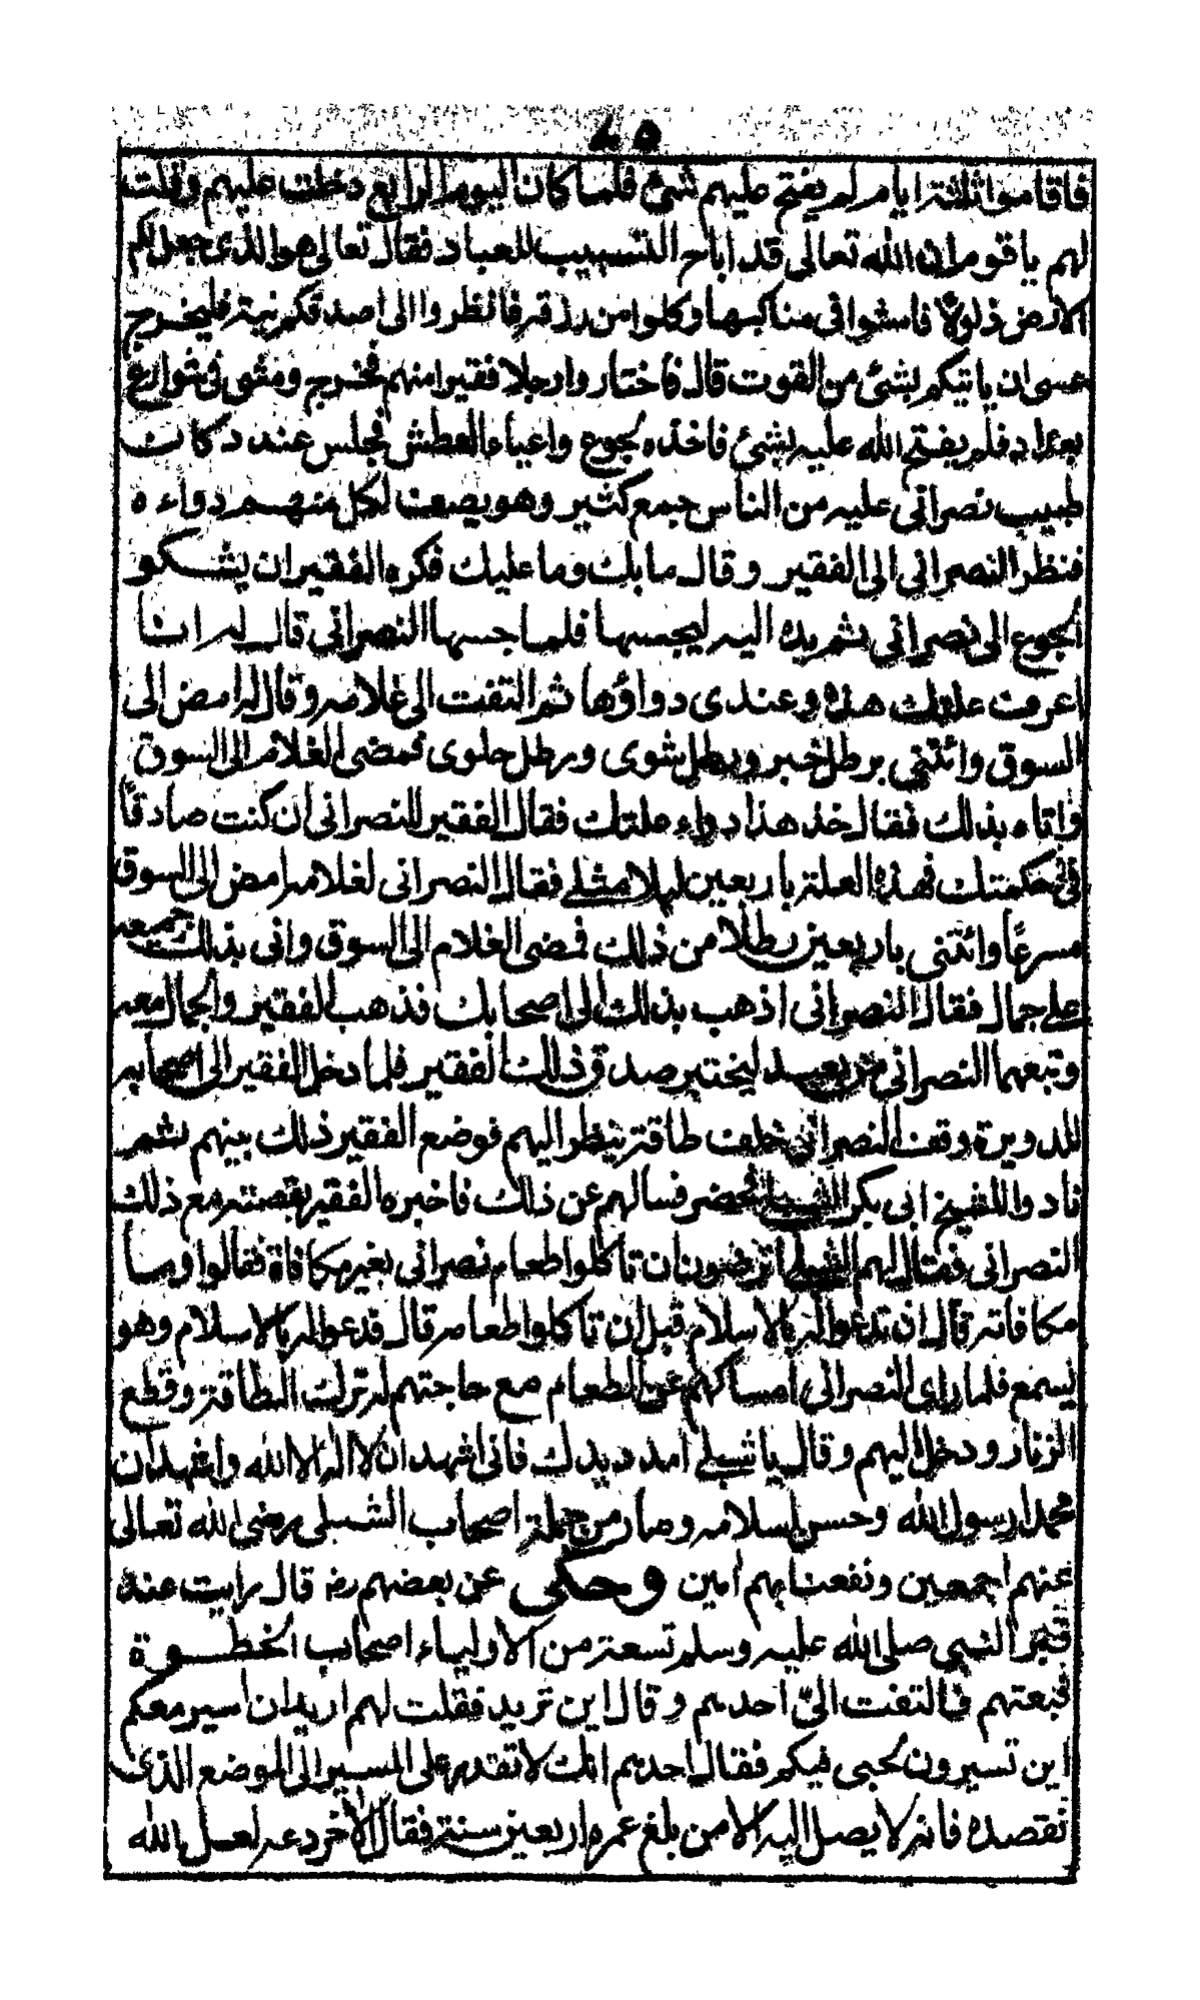 فاقاموا ثلثة ايام لم يفتح عليهم شئ فلما كان اليوم الرابع دخلت عليهم وقلت
لهم يا قوم ان الله تعالى قد اباح التسبيب للعباد فقال تعالى هو الذى جعل لكم
الارض ذلولا فامشوا فى مناكبها وكلوا من رزقه فانظروا الى اصدقكم نية فليخرج
عسى ان ياتيكم بشئ من القوت قال فاختاروا رجلا فقيرا منهم فخرج ومشى فى شوارع
بغداد فلم يفتح الله عليه بشئ فاخذه لجوع واعياه العطش فجلس عند دكان
طبيب نصرانى عليه من الناس جمع كثير وهو يصف لكل منهم دواءه
فنظر النصرانى الى الفقير وقال ما بك وما عليك فكره الفقير ان يشكو
لجوع الى نصرانى ثم مد يده اليه ليجسها فلما جسها النصرانى قال له انا
اعرف علتك هذه وعندى دواؤها ثم التفت الى غلامه وقال له امض الى
السوق وائتنى برطل خبز ورطل شوى ورطل حلوى فمضى الغلام الى السوق
واتاه بذلك فقال خذ هذا دواء علتك فقال الفقير للنصرانى ان كنت صادقا
فى حكمتك فهذه العلة باربعين ليلا مثلى فقال النصرانى لغلامه امض الى السوق
مسرعًا وائتنى باربعين رطلا من ذلك فمضى الغلام الى السوق واتى بذلك جميعه
على جمال فقال النصرانى اذهب بذلك الى اصحابك فذهب الفقير والجمال معه
وتبعهما النصرانى من بعيد ليختبر صدق ذلك الفقير فلما دخل الفقير الى اصحابه
للدويرة وقف النصرانى خلف طاقة ينظر اليهم فوضع الفقير ذلك بينهم ثم
نادوا للشيخ ابى بكر الشبلى فحضر فسالهم عن ذلك فاخبره الفقير بقصته مع ذلك
النصرانى فقال لهم الشبلى اترضون ان تاكلوا طعام نصرانى بغير مكافاة فقالوا وما
مكافاته قال ان تدعوا له بالاسلام قبل ان تاكلوا طعامه قال فدعوا له بالاسلام وهو
يسمع فلما راى النصرانى امساكهم عن الطعام مع حاجتهم له ترك الطاقة وقطع
الزنار ودخل اليهم وقال يا شبلى امدد يدك فانى اشهد ان لا اله الا الله واشهد ان
محمدا رسول الله وحسن اسلامه وصار من جملة اصحاب الشبلى رضى الله تعالى
عنهم اجمعين ونفعنا بهم امين وحكى عن بعضهم رض قال رايت عند
قبر النبى صلى الله عليه وسلم تسعة من الاولياء اصحاب الخطوة
فتبعتهم فالتفت الىّ احدهم وقال اين تريد فقلت لهم اريد ان اسير معكم
اين تسيرون لحبى فيكم فقال احدهم انك لا تقدر على المسير الى الموضع الذى
نقصده فانه لا يصل اليه الا من بلغ عمره اربعين سنة فقال الاخر دعه لعل الله